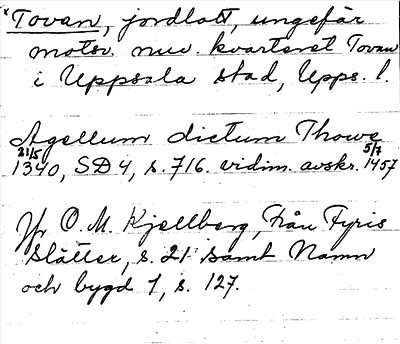 *Tovan, jordlott, ungefär
motsv. nuv. kvarteret Tovan
i Uppsala stad, Upps. l.
Agellum dictum Thowe
21/5 1340, SD 4, s. 716. vidim. avskr. 5/7 1457
Jfr O. M. Kjellberg, Från Fyris
Slätter, s. 21 samt Namn
och bygd 1, s. 127.